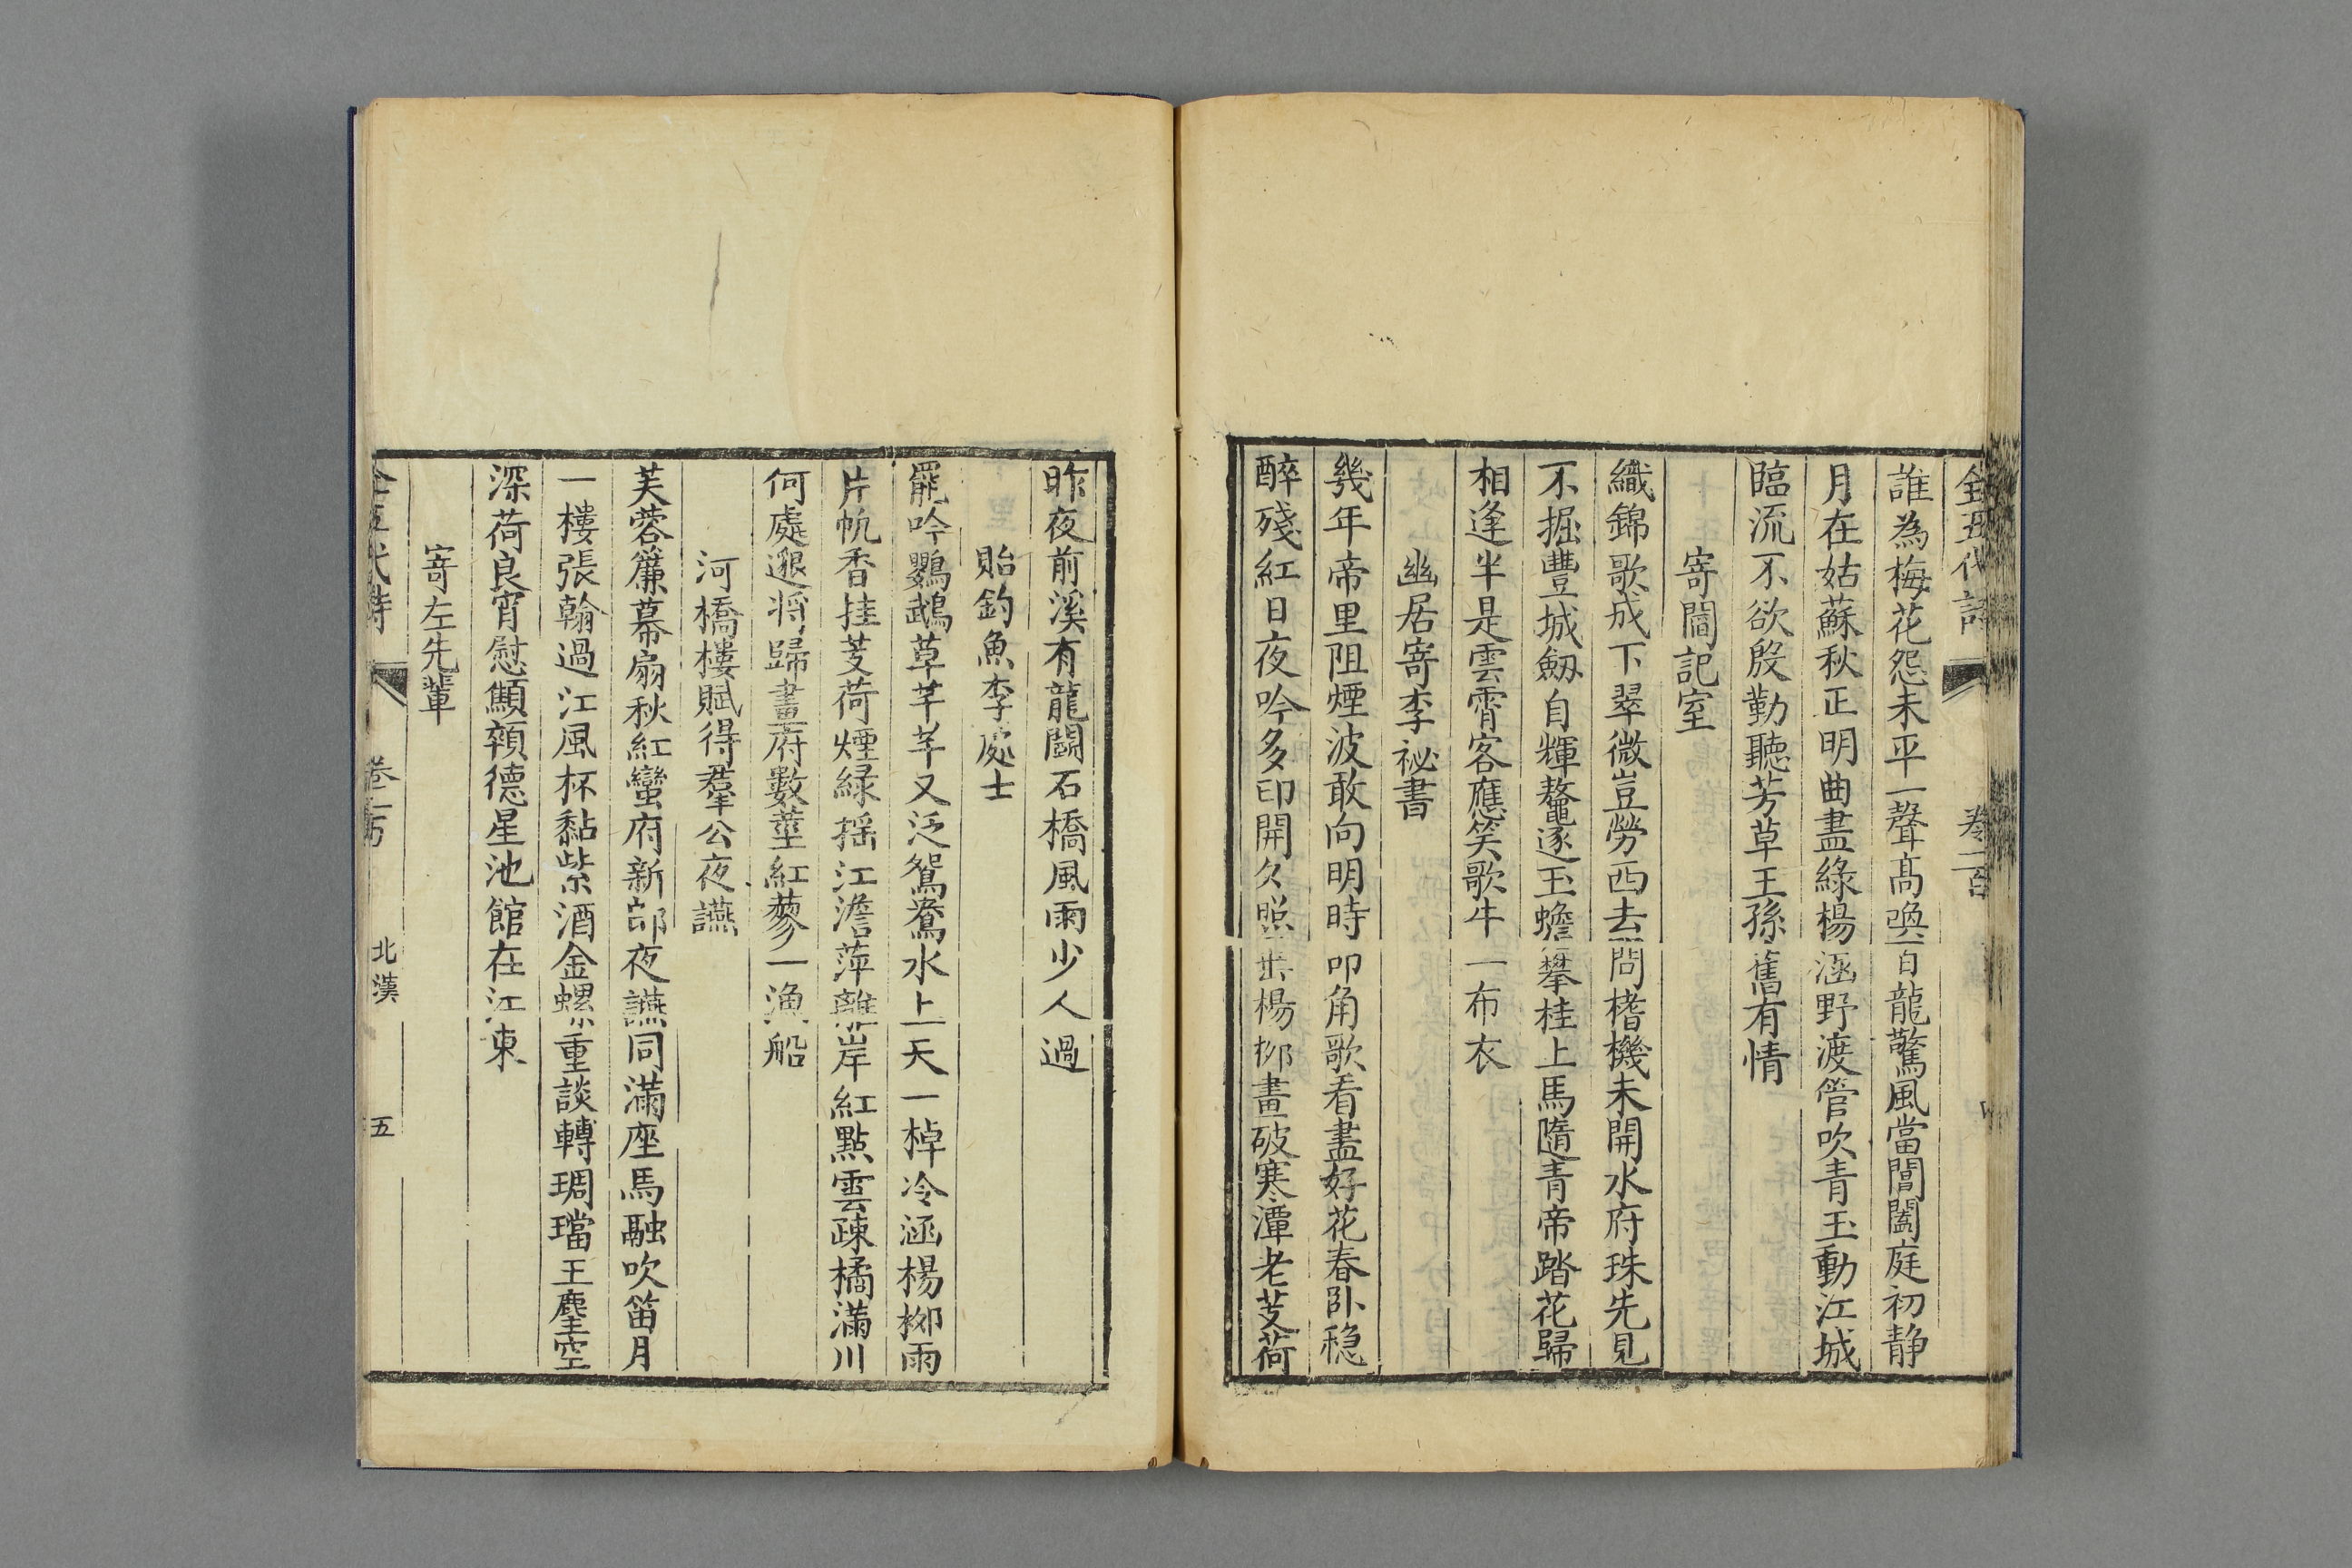 全五代詩 卷一百
誰為梅花怨未平一聲髙喚百龍驚風當閶闔庭初静
月在姑蘇秋正明曲盡綠楊涵野渡管吹青玉動江城
臨流不欲殷勤聽芳草王孫舊有情
寄閻記室
織錦歌成下翠微豈勞西去問楮機未開水府珠先見
不掘豐城劔自輝鼇逐玉蟾攀桂上馬隨青帝踏花歸
相逢半是雲霄客應笑歌牛一布衣
幽居寄李祕書
幾年帝里阻煙波敢向明時叩角歌看盡好花春卧稳
醉殘紅日夜吟多印開夕照垂楊柳畫破寒潭老芰荷
昨夜前溪有龍鬬石橋風雨少人過
貽釣魚李處士
罷吟鸚鵡草芊芊又泛鴛鴦水上天一棹冷涵楊柳雨
片帆香挂芰荷煙緑摇江澹萍離岸紅點雲疎橘滿川
何處邀將歸畫府數莖紅蓼一漁船
河橋樓賦得羣公夜讌
芙蓉簾幕扇秋紅蠻府新郎夜讌同滿座馬融吹笛月
一樓張翰過江風杯黏紫酒金螺重談轉琱璫王麈空
深荷良宵慰顦顇德星池館在江東
寄左先輩
全五代詩 卷一百 北漢 五